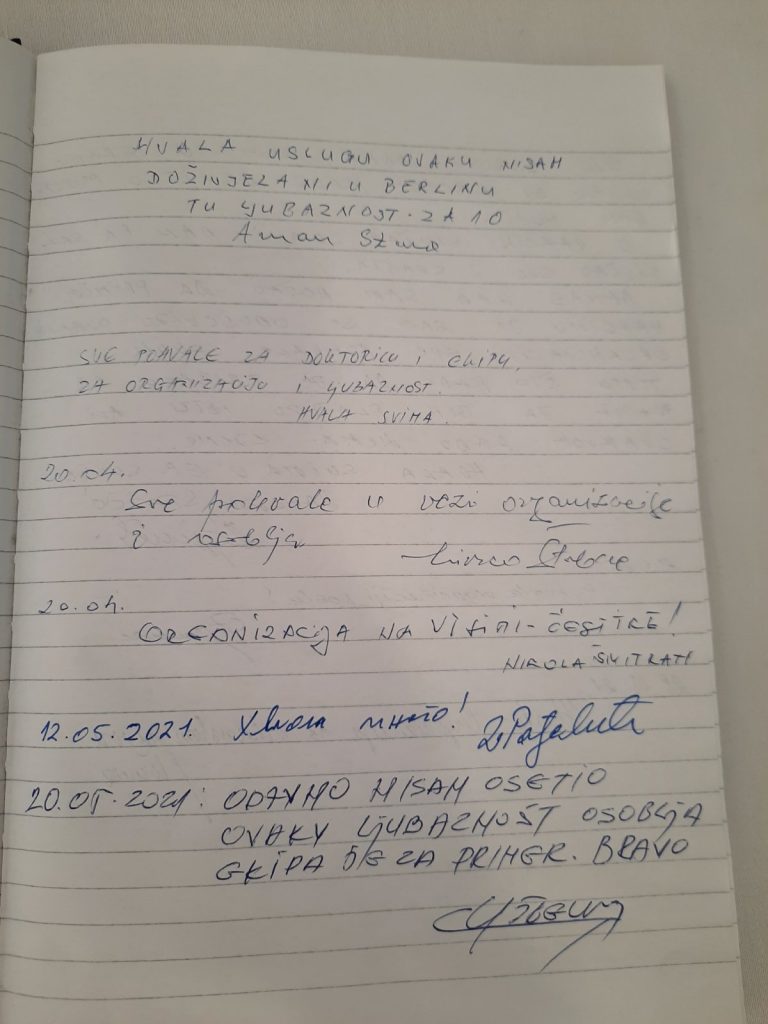 HVALA USLUGU OVAKU NISAM
DOŽIVJELA NI U BERLINU
TU LJUBAZNOST. ZA 10
SVE POHVALE ZA DOKTORICU I EKIPU,
ZA ORGANIZACIJU I LJUBAZNOST.
HVALA SVIMA.
20.04.
Sve pohvale u vezi organizacije
i osoblja
20.04.
ORGANIZACIJA NA VISINI - ČESTITKE!
NIKOLA
12.05.2021. Хвала много!
20.05.2021: ODAVNO NISAM OSETIO
OVAKV LJUBAZNOST OSOBLJA
EKIPA JE ZA PRIMER. BRAVO